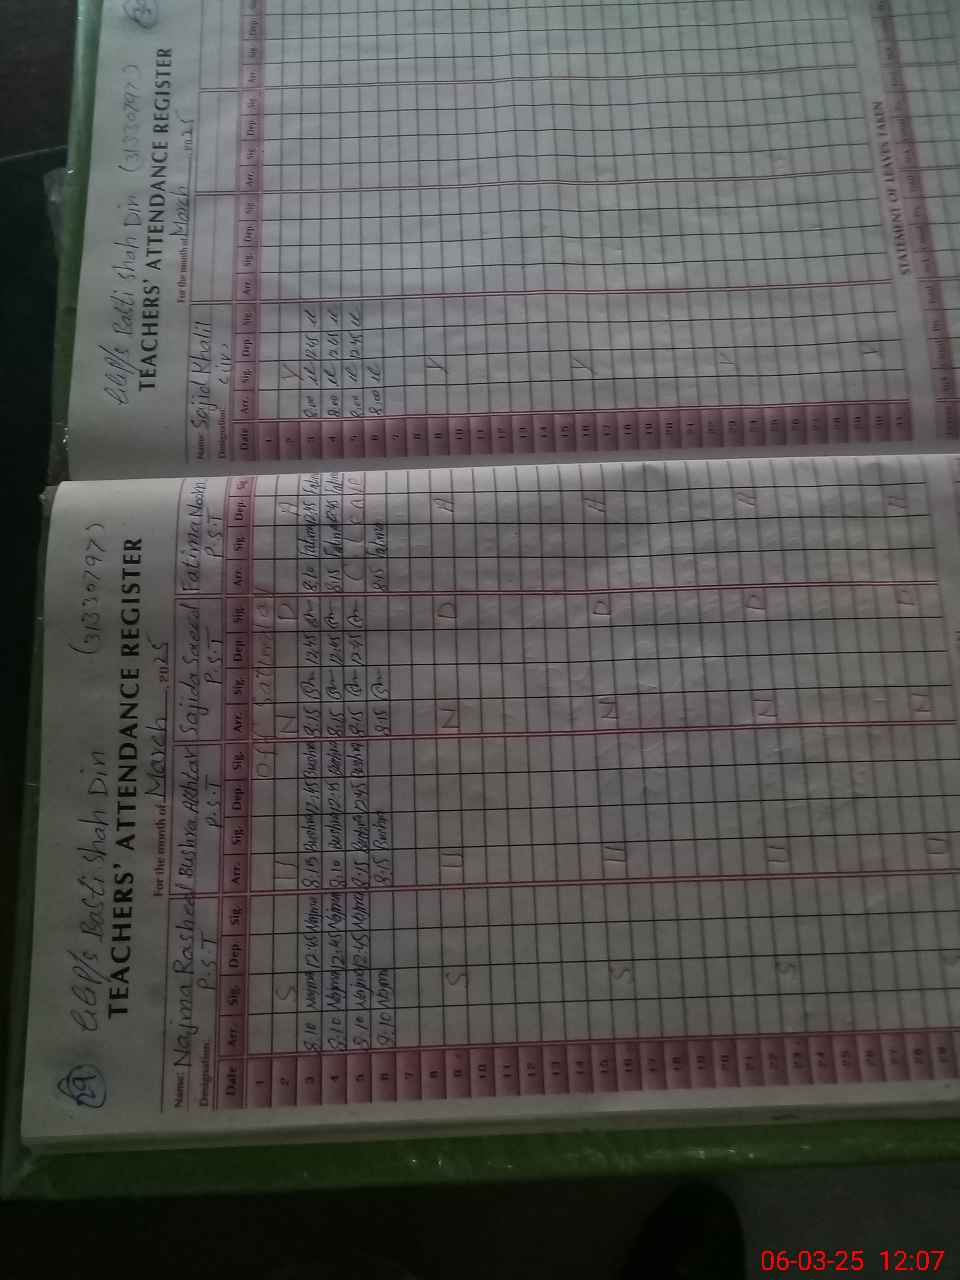 29
Basti Shah Din (31330797)
TEACHERS' ATTENDANCE REGISTER
For the month of March 2025
Name: Najma Rasheed Bushra Akhtar Sajida Saeed Fatima Noor
Designation: P.S.T P.S.T P.S.T P.S.T
Date Arr. Sig. Dep. Sig. Arr. Sig. Dep. Sig. Arr. Sig. Dep. Sig. Arr. Sig. Dep. Sig.
1 Off Saturday
2 S U N D A
3 8:10 Najma 12:45 Najma 8:15 Bushra 12:45 Bushra 8:15 12:45 8:10 Fatima 12:45
4 8:10 Najma 12:45 Najma 8:10 Bushra 12:45 Bushra 8:15 12:45 8:15 Fatima 12:45
5 8:10 Najma 12:45 Najma 8:15 Bushra 12:45 Bushra 8:15 12:45 C Leave
6 8:10 Najma 8:15 Bushra 8:15 8:15 Fatima
7
8
9 S U N D A
10
11
12
13
14
15
16 S U N D A
17
18
19
20
21
22
23 S U N D A
24
25
26
27
28
29
Basti Shah Din (31330797)
TEACHERS' ATTENDANCE REGISTER
For the month of March 2025
Name: Sajid Khalil
Designation:
Date Arr. Sig. Dep. Sig. Arr. Sig. Dep. Sig. Arr. Sig. Dep. Sig. Arr. Sig. Dep.
1
2 Y
3 8:00 12:45
4 8:00 12:45
5 8:00 12:45
6 8:00
7
8
9 Y
10
11
12
13
14
15
16 Y
17
18
19
20
21
22
23 Y
24
25
26
27
28
29
30 Y
31
STATEMENT OF LEAVES TAKEN
06-03-25 12:07